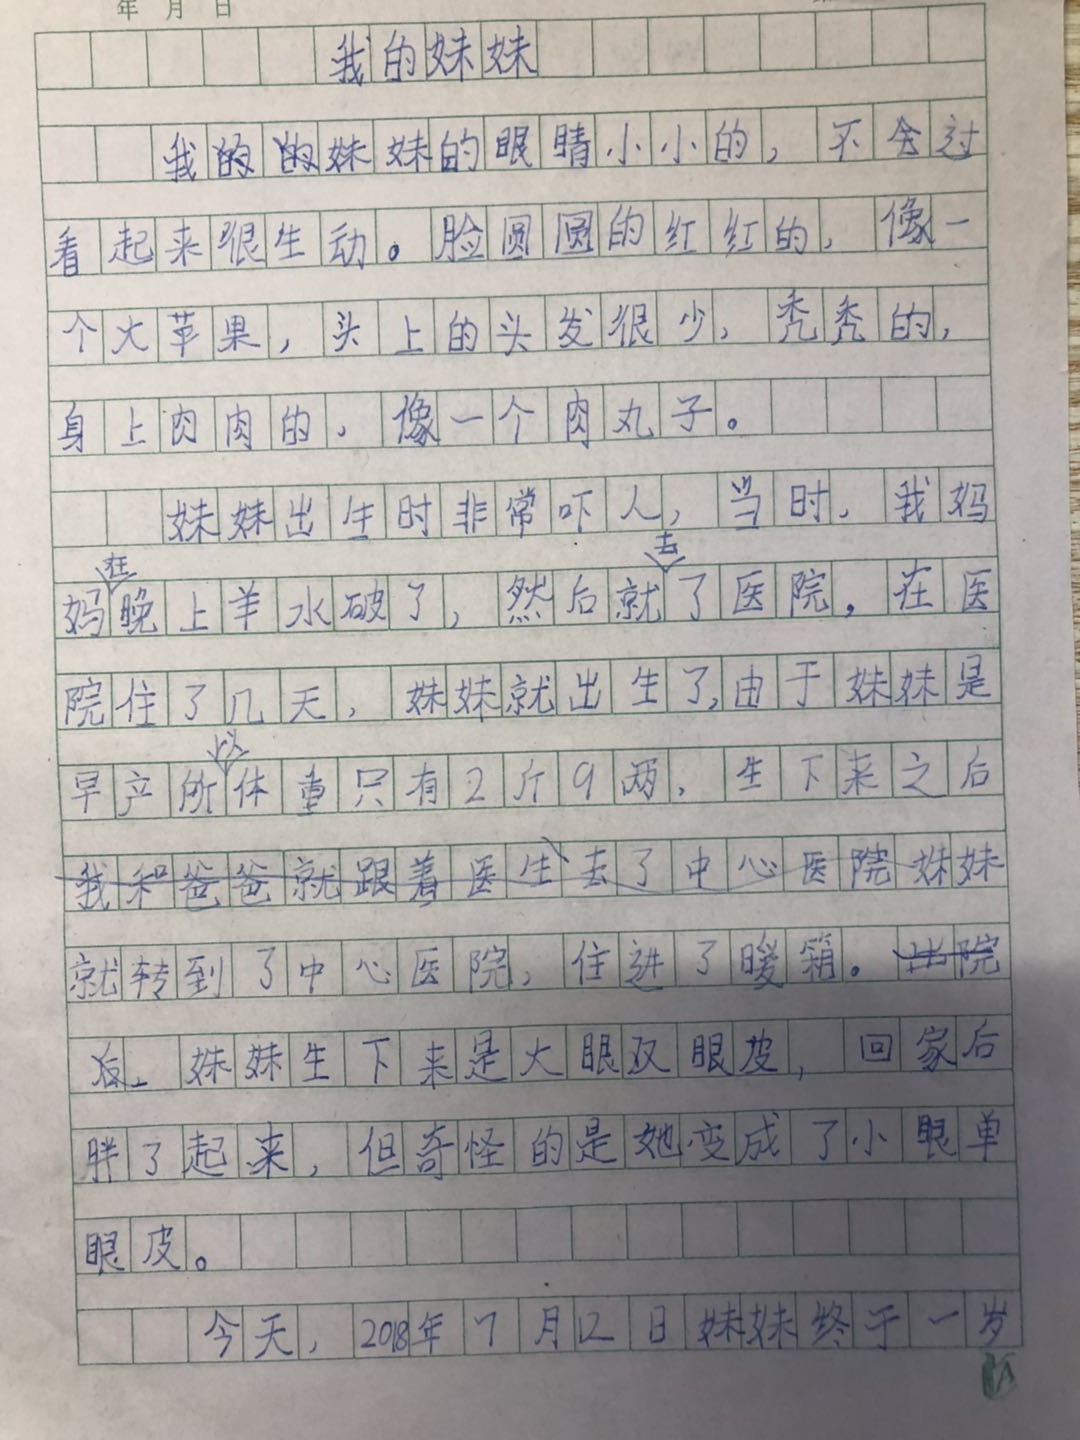 年 月 日
我的妹妹
我的的妹妹的眼睛小小的，不会过
看起来很生动。脸圆圆的红红的，像一
个大苹果，头上的头发很少，秃秃的，
身上肉肉的，像一个肉丸子。
妹妹出生时非常吓人，当时，我妈
妈在晚上羊水破了，然后就去了医院，在医
院住了几天，妹妹就出生了，由于妹妹是
早产所以体重只有2斤9两，生下来之后
我和爸爸就跟着医生去了中心医院妹妹
就转到了中心医院，住进了暖箱。出院
后，妹妹生下来是大眼双眼皮，回家后
胖了起来，但奇怪的是她变成了小眼单
眼皮。
今天，2018年7月12日妹妹终于一岁